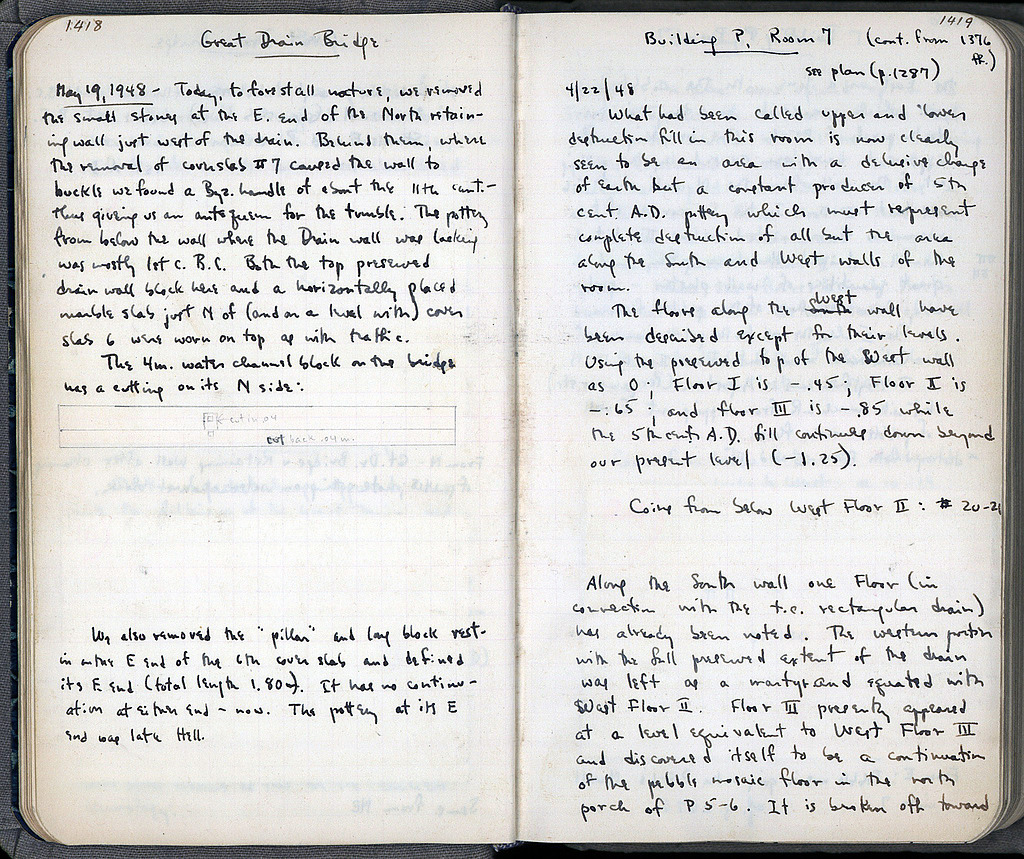 1418
Great Drain Bridge
May 19, 1948 - Today, to forestall nature, we removed
the small stones at the E. end of the North retain-
ing wall just west of the drain. Behind them, where
the removal of coverslab #7 caused the wall to
buckle we found a Byz. handle of about the 11th cent. -
thus giving us an ante quem for the tumble. The pottery
from below the wall where the Drain wall was lacking
was mostly 1st c. B.C. Both the top preserved
drain wall block here and a horizontally placed
marble slab just N of (and on a level with) cover
slab 6 were worn on top as with traffic.
The 4m. water channel block on the bridge
has a cutting on its N side:
cut in .04
cut back .04 m.
We also removed the "pillar" and long block rest-
in on the E end of the 6th cover slab and defined
its E end (total length 1.80). It has no continu-
ation at either end - now. The pottery at its E
end was late Hell.
1419
Building P, Room 7 (cont. from 1376
ff.)
see plan (p. 1287)
4/22/48
What had been called upper and lower
destruction fill in this room is now clearly
seen to be an area with a delusive change
of earth but a constant producer of 5th
cent. A.D. pottery which must represent
complete destruction of all but the area
along the South and West walls of the
room.
The floors along the West wall have
been described except for their levels.
Using the preserved top of the West wall
as 0; Floor I is -.45; Floor II is
-.65; and floor III is -.85 while
the 5th cent. A.D. fill continues down beyond
our present level (-1.25).
Coins from below West Floor II: # 20-21
Along the South wall one Floor (in
connection with the t.c. rectangular drain)
has already been noted. The western portion
with the full preserved extent of the drain
was left as a martyr and equated with
West Floor II. Floor III presently appeared
at a level equivalent to West Floor III
and discovered itself to be a continuation
of the pebble mosaic floor in the north
porch of P 5-6. It is broken off toward